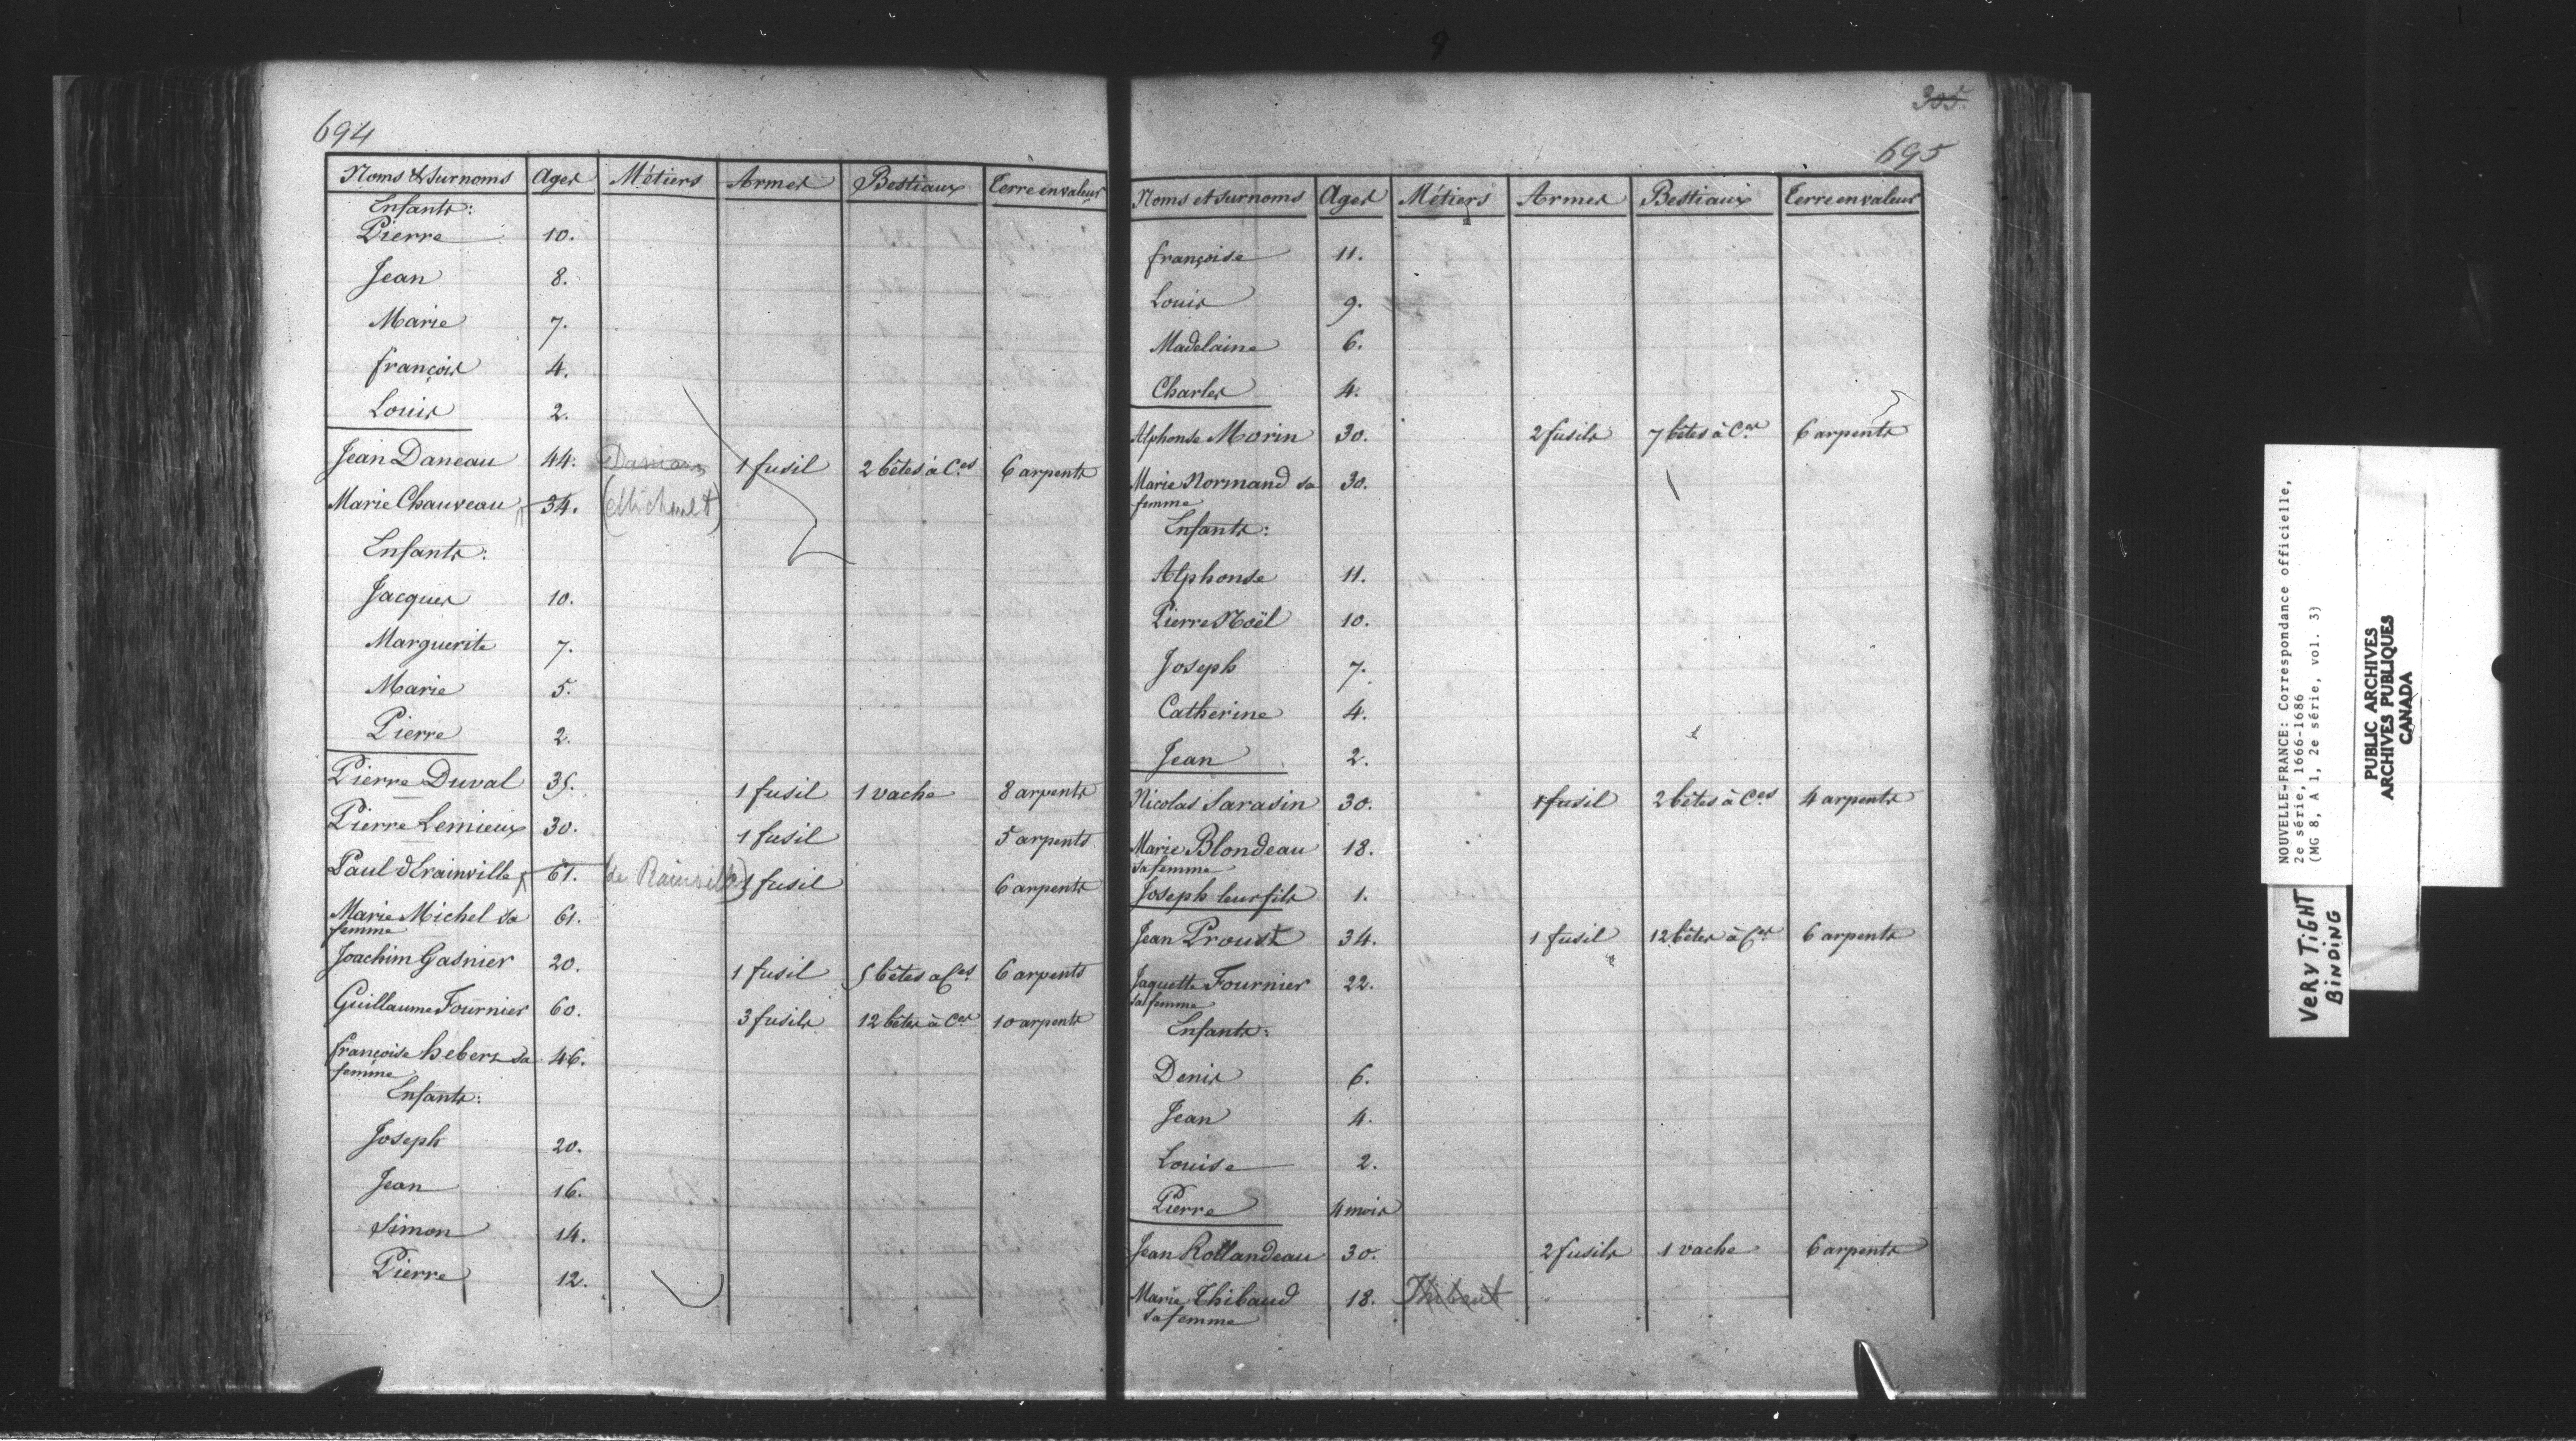 694
Noms et surnoms Ages Métiers Armes Bestiaux Terre en valeur
Enfants:
Pierre 10.
Jean 8.
Marie 7.
françois 4.
Louis 2.
Jean Daneau 44. 1 fusil 2 bêtes à C.es 6 arpents
Marie Chauveau 34. (Michault)
Enfants:
Jacques 10.
Marguerite 7.
Marie 5.
Pierre 2.
Pierre Duval 35. 1 fusil 1 vache 8 arpents
Pierre Lemieux 30. 1 fusil 5 arpents
Paul drainville 61. (de Rainville) 1 fusil 6 arpents
Marie Michel sa 61.
femme
Joachim Gasnier 20. 1 fusil 5 bêtes a C.es 6 arpents
Guillaume Fournier 60. 3 fusils 12 bêtes à C.es 10 arpents
françoise hebert sa 46.
femme
Enfants:
Joseph 20.
Jean 16.
Simon 14.
Pierre 12.
305.
695
Noms et surnoms Ages Métiers Armes Bestiaux Terre en valeur
françoise 11.
Louis 9.
Madelaine 6.
Charles 4.
Alphonse Morin 30. 2 fusils 7 bêtes à C.es 6 arpents
Marie Normand sa 30.
femme
Enfants:
Alphonse 11.
Pierre Noël 10.
Joseph 7.
Catherine 4.
Jean 2.
Nicolas Sarasin 30. 1 fusil 2 bêtes à C.es 4 arpents
Marie Blondeau 18.
sa femme
Joseph leur fils 1.
Jean Proust 34. 1 fusil 12 bêtes à C.es 6 arpents
Jaquette Fournier 22.
sa femme
Enfants:
Denis 6.
Jean 4.
Louise 2.
Pierre 4 mois
Jean Rollandeau 30. 2 fusils 1 vache 6 arpents
Marie Thibaud 18. Thibaut
sa femme
NOUVELLE-FRANCE: Correspondance officielle,
2e série, 1666-1686
(MG 8, A 1, 2e série, vol. 3)
PUBLIC ARCHIVES
ARCHIVES PUBLIQUES
CANADA
VERY TIGHT
BINDING